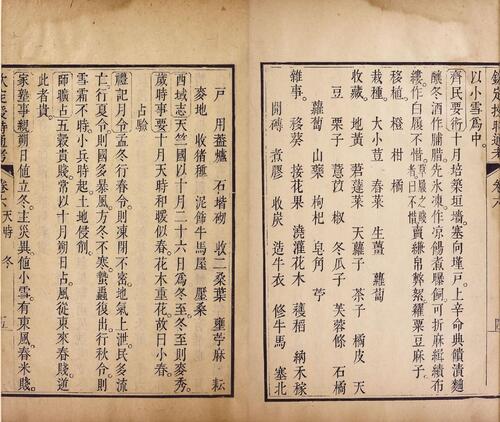 欽定授時通考 卷六
以小雪爲中。
齊民要術十月培築垣墻塞向墐戸。上辛命典饋漬麴
釀冬酒作脯腊。先氷凍作凉餳煮暴飴。可折麻緝績布
縷。作白履不惜。草履之賤者曰不惜賣縑帛弊絮。糴粟豆麻子。
移植 橙 柑 橘
栽種。大小荳 春菜 生薑 蘿蔔
收藏。地黃 薘葉 天蘿子 茶子 橘皮 天
豆 栗子 薏苡 椒 冬瓜子 芙蓉條 石橘
蘿蔔 山藥 枸杞 皂角 苧
雜事。移葵 接花果 澆灌花木 穫稻 納禾稼
開磚 煮膠 收炭 造牛衣 修牛馬 塞北
戸 用葢爐 石墖砌 收二桑葉 壅苧麻 耘
麥地 收猪種 泥飾牛馬屋 壓桑
西域志天竺國以十月二十六日爲冬至。冬至則麥秀。
歲時事要十月天時和暖似春。花木重花。故曰小春。
占驗
禮記月令孟冬行春令則凍閉不密地氣上泄民多流
亡。行夏令則國多暴風方冬不寒蟄蟲復出。行秋令則
雪霜不時。小兵時起。土地侵削。
師曠占五穀貴賤常以十月朔日占風從東來春賤。逆
此者貴。
家塾事親朔日値立冬。主災異。値小雪有東風。春米賤。
欽定授時通考 卷六 天時 冬 五